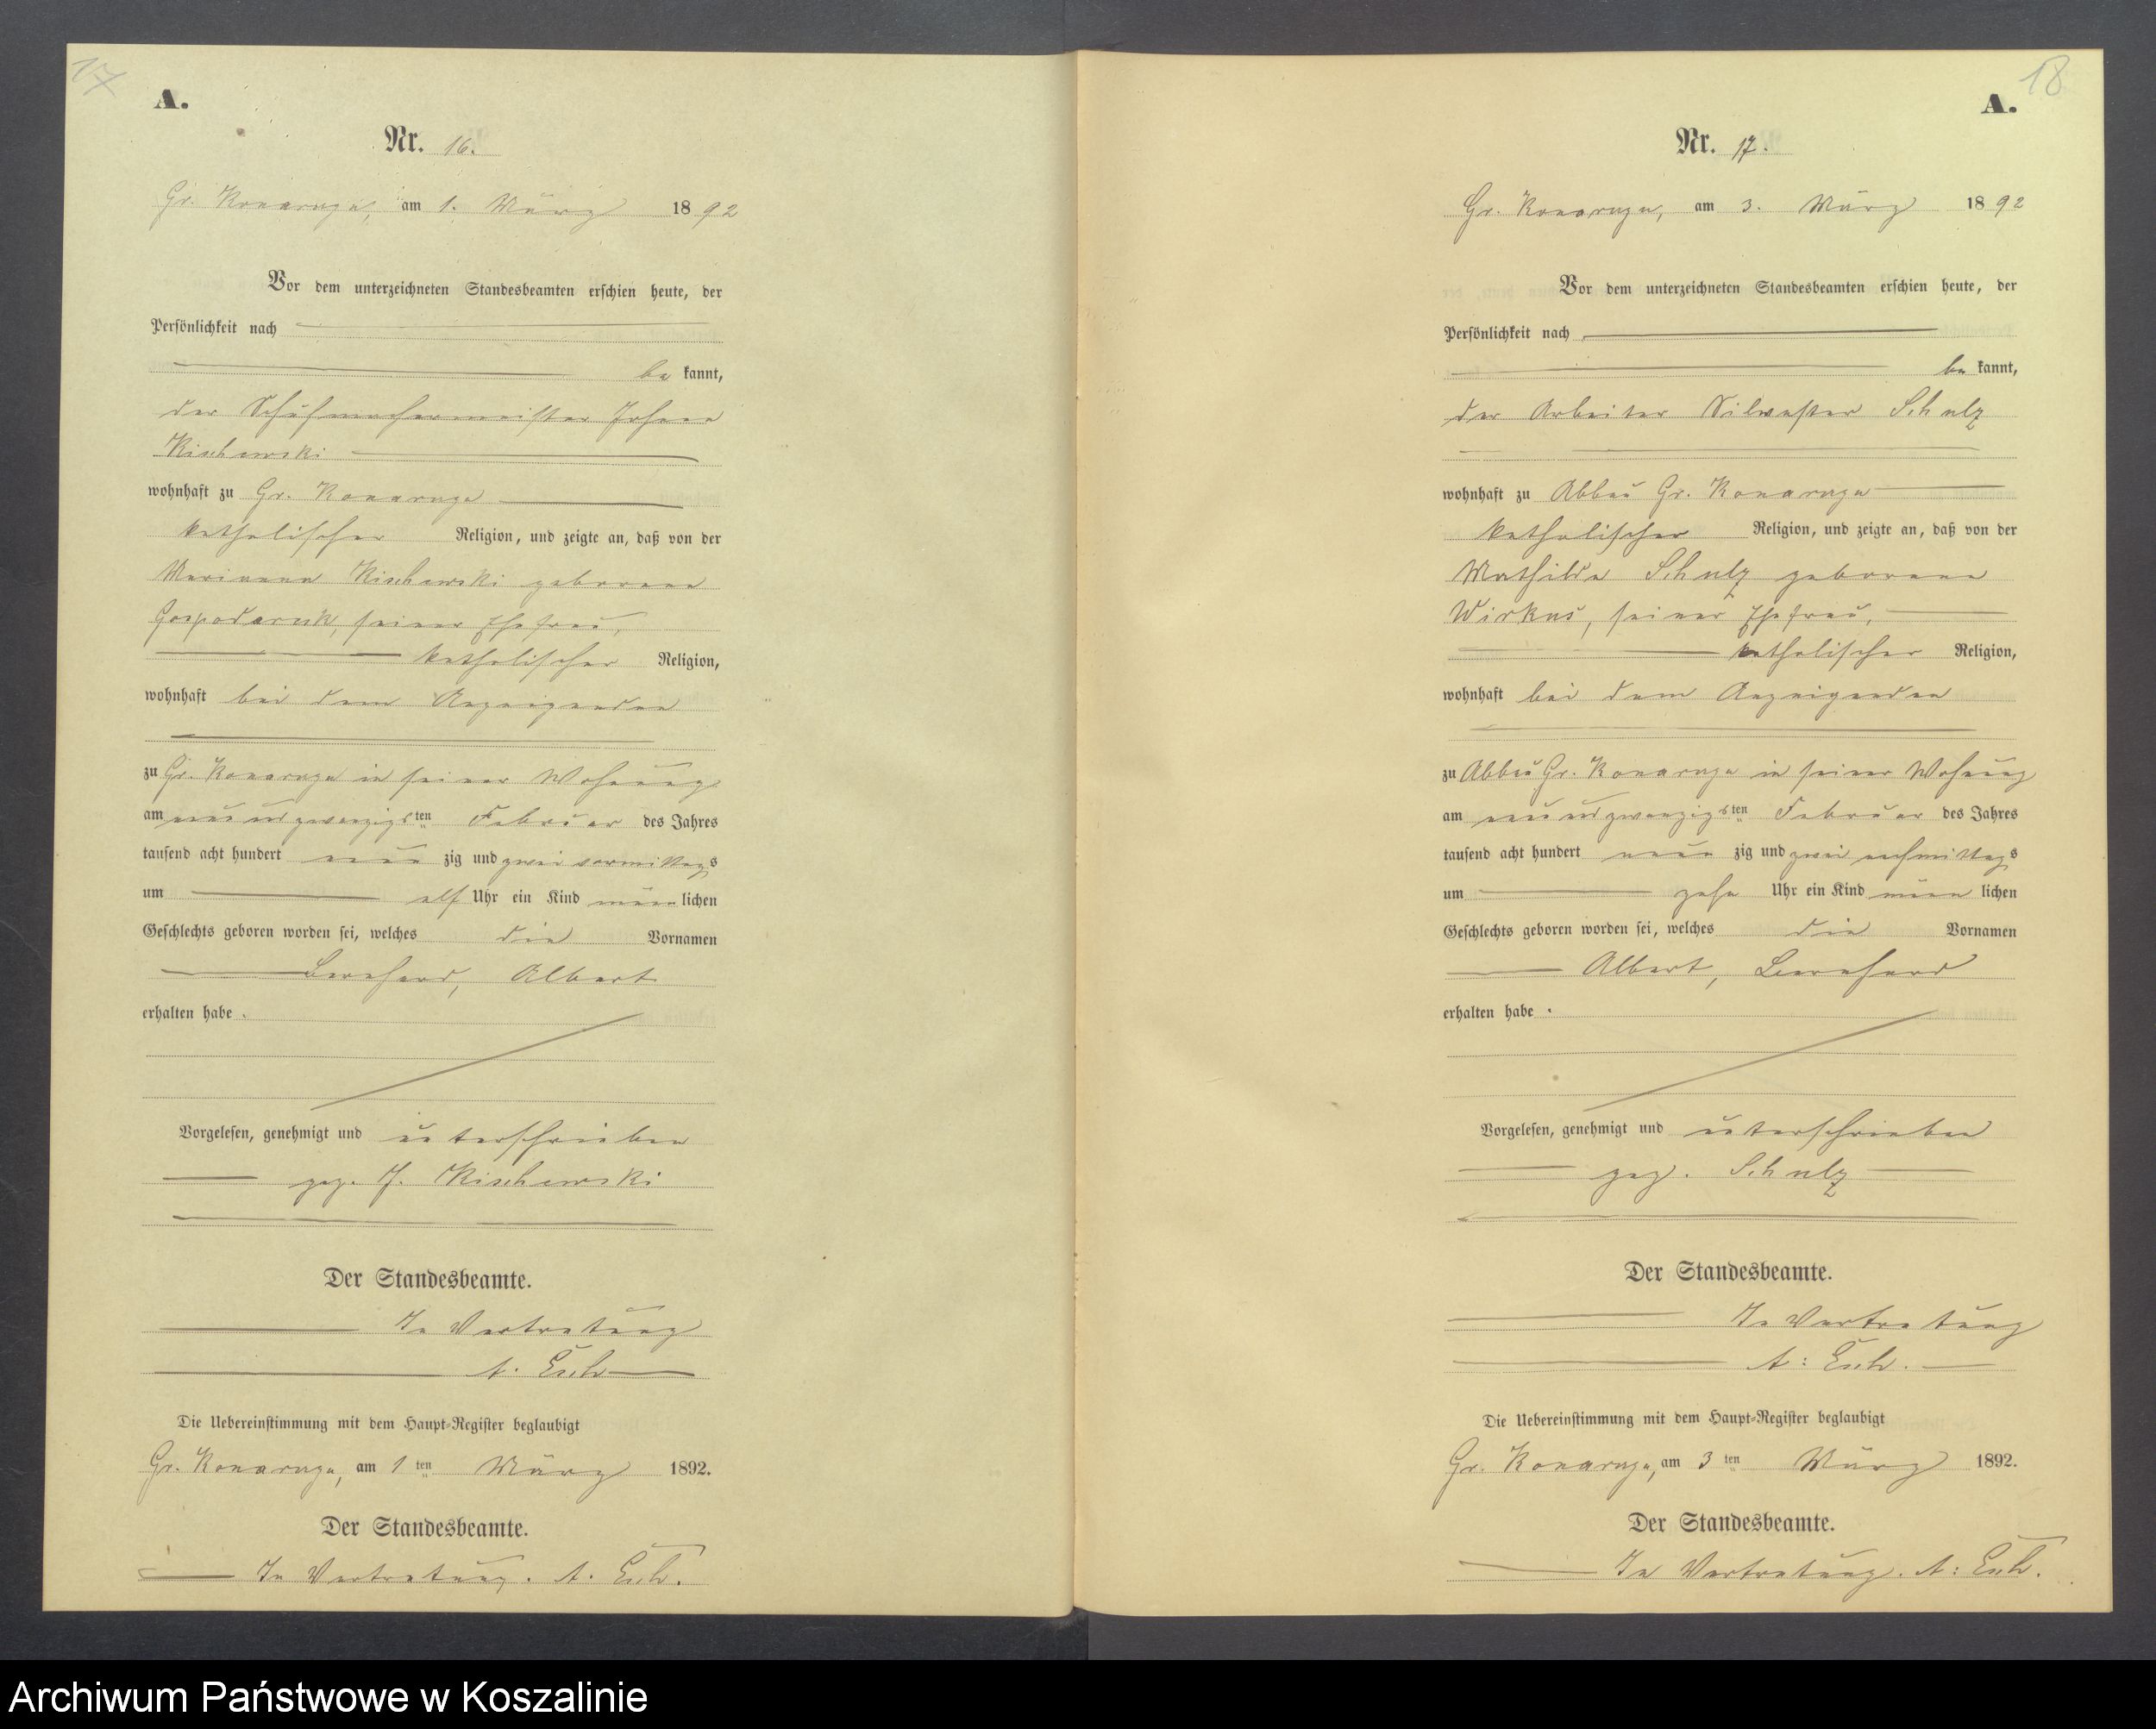 17
A.
Nr. 16.
Gr. Konarzyn, am 1. März 1892
Vor dem unterzeichneten Standesbeamten erschien heute, der
Persönlichkeit nach
be kannt,
der Schuhmachermeister Johann
Kischewski
wohnhaft zu Gr. Konarzyn
katholischer Religion, und zeigte an, daß von der
Marianna Kischewski geborene
seiner Ehefrau,
katholischer Religion,
wohnhaft bei dem Anzeigenden
zu Gr. Konarzyn in seiner Wohnung
am neunundzwanzigsten Februar des Jahres
tausend acht hundert neun zig und zwei vormittags
um elf Uhr ein Kind männ lichen
Geschlechts geboren worden sei, welches die Vornamen
Bernhard, Albert
erhalten habe.
Vorgelesen, genehmigt und unterschrieben
gez. J. Kischewski
Der Standesbeamte.
In Vertretung
A.
Die Uebereinstimmung mit dem Haupt-Register beglaubigt
Gr. Konarzyn, am 1ten März 1892.
Der Standesbeamte.
In Vertretung. A.
18
A.
Nr. 17.
Gr. Konarzyn, am 3. März 1892
Vor dem unterzeichneten Standesbeamten erschien heute, der
Persönlichkeit nach
be kannt,
der Arbeiter Silvester Schulz
wohnhaft zu Abbau Gr. Konarzyn
katholischer Religion, und zeigte an, daß von der
Mathilde Schulz geborene
Wirkus, seiner Ehefrau,
katholischer Religion,
wohnhaft bei dem Anzeigenden
zu Abbau Gr. Konarzyn in seiner Wohnung
am neunundzwanzigsten Februar des Jahres
tausend acht hundert neun zig und zwei nachmittags
um zehn Uhr ein Kind männ lichen
Geschlechts geboren worden sei, welches die Vornamen
Albert, Bernhard
erhalten habe.
Vorgelesen, genehmigt und unterschrieben
gez. Schulz
Der Standesbeamte.
In Vertretung
A:
Die Uebereinstimmung mit dem Haupt-Register beglaubigt
Gr. Konarzyn, am 3ten März 1892.
Der Standesbeamte.
In Vertretung. A:
Archiwum Państwowe w Koszalinie